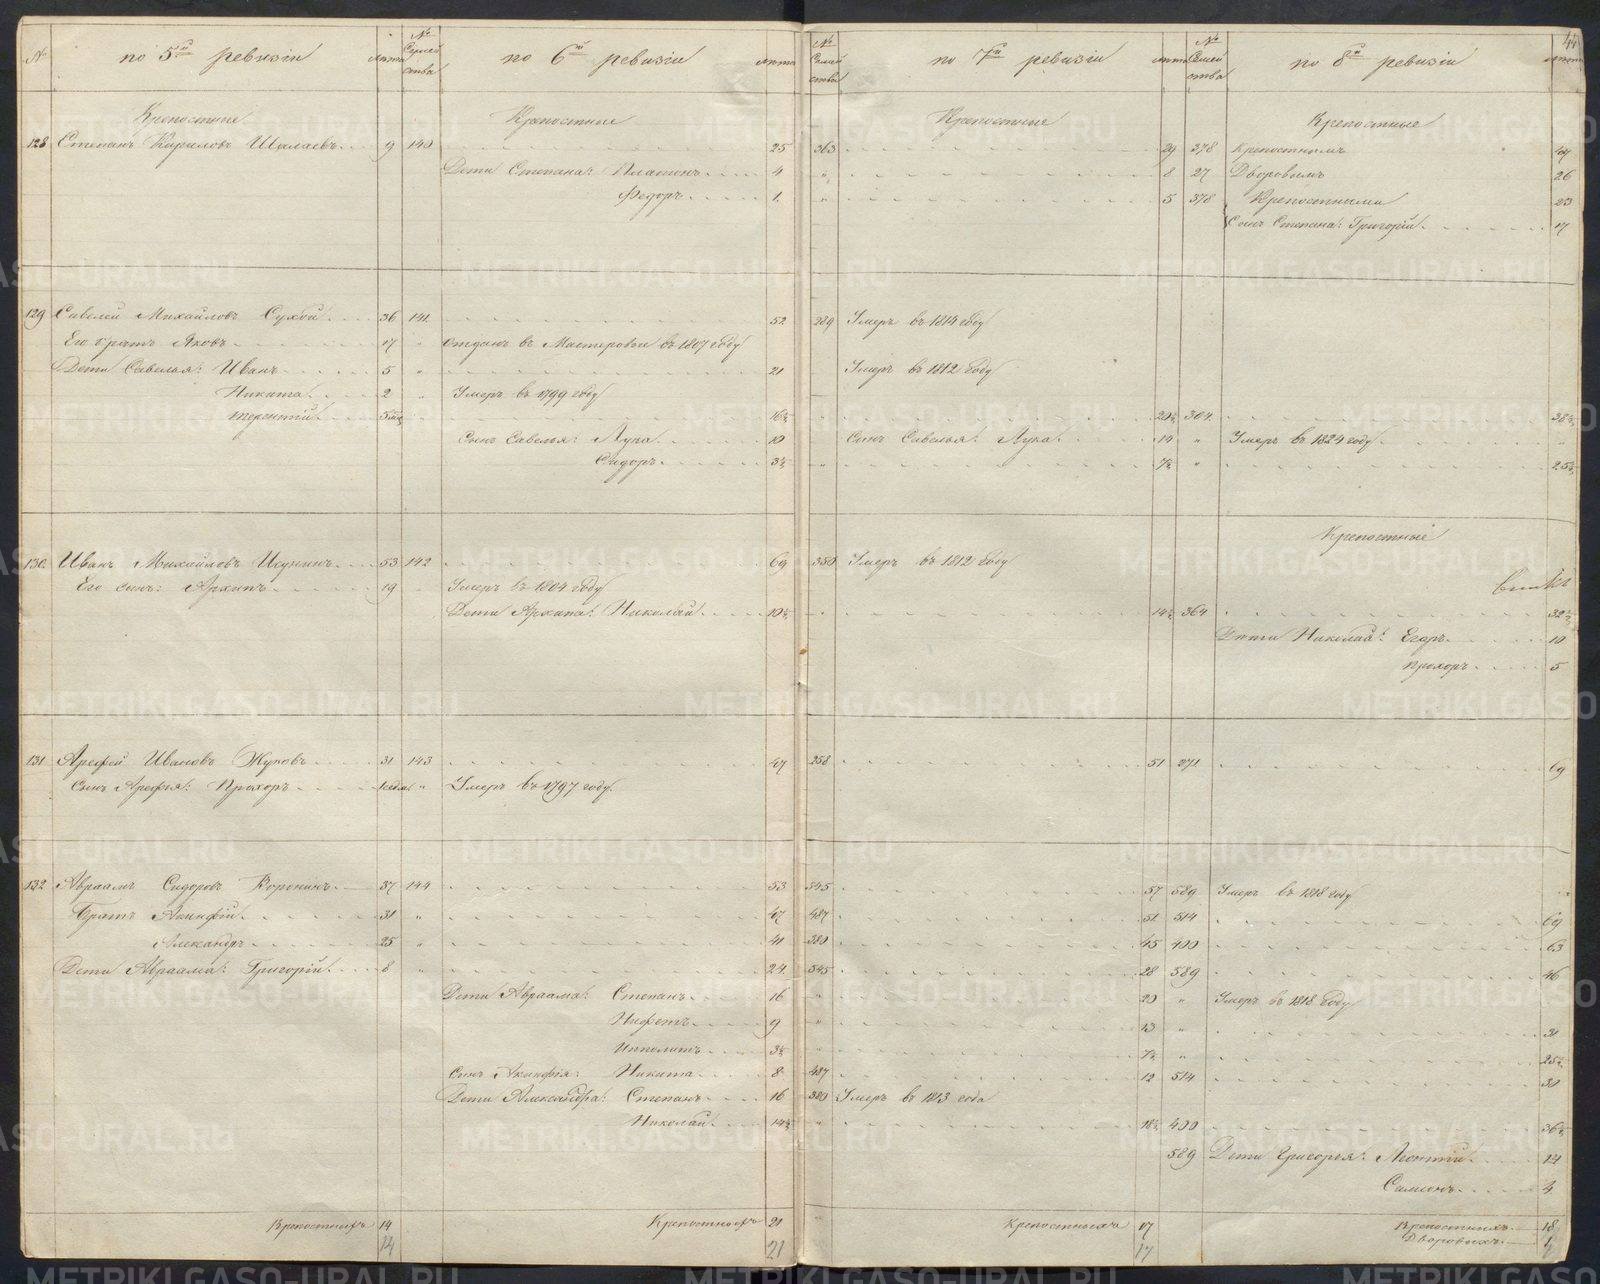 44
№ по 5й ревизіи лѣта № Семейства по 6й ревизіи лѣта № Семейства по 7й ревизіи лѣта № Семейства по 8й ревизіи лѣта
Крепостные Крепостные Крепостные Крепостные
128 Степанъ Кириловъ 9 140 25 363 29 378 Крепостнымъ
Дети Степана: Платонъ 4 " 8 27 Дворовымъ 26
Федоръ 1 " 5 378 Крепостными 23
Сынъ Степана: Григорій 17
129 Савелей Михайловъ Сухой 36 141 52 289 Умеръ въ 1814 году
Его братъ Яковъ 17 " отданъ въ Мастеровые въ 1807 году
Дети Савелья: Иванъ 5 " 21 Умеръ въ 1812 году
Никита 2 " Умеръ въ 1799 году
Терентій 5 мц 16½ 20½ 304 38½
Сынъ Савелья: Лука 10 Сынъ Савелья: Лука 14 " Умеръ въ 1824 году
Сидоръ 3½ " 7½ " 25½
Крепостные
130 Иванъ Михайловъ 53 142 69 350 Умеръ въ 1812 году
Его сынъ: Архипъ 19 " Умеръ въ 1804 году
Дети Архипа: Николай 10½ 14½ 364 32½
Дети Николая: Егоръ 10
Прохоръ 5
131 Арефей Ивановъ Жуковъ 31 143 47 258 51 271 69
Сынъ Арефья: Прохоръ " Умеръ въ 1797 году
132 Авраамъ Сидоровъ Воронинъ 37 144 53 545 57 589 Умеръ въ 1818 году
Братъ Акинфій 31 " 47 487 51 514 69
Александръ 25 " 41 380 45 400 63
Дети Авраама: Григорій 8 " 24 545 28 589 46
Дети Авраама: Степанъ 16 " 20 " Умеръ въ 1818 году
Нифетъ 9 " 13 " 31
Ипполитъ 3½ " 7½ " 25½
Сынъ Акинфія: Никита 8 487 12 514 30
Дети Александра: Степанъ 16 380 Умеръ въ 1813 года
Николай 14½ " 18½ 400 36½
589 Дети Григорья: Леонтій 14
Самсонъ 4
Крепостныхъ 14 Крепостныхъ 21 Крепостныхъ 17 Крепостныхъ 18
Дворовыхъ 1
14 21 17
METRIKI.GASO-URAL.RU